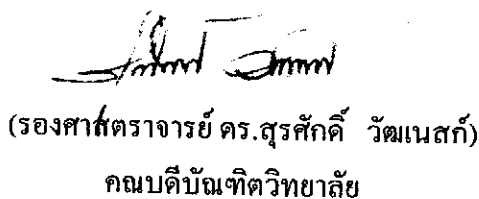 (รองศาสตราจารย์ ดร.สุรศักดิ์ วัฒเนสก์)
คณบดีบัณฑิตวิทยาลัย